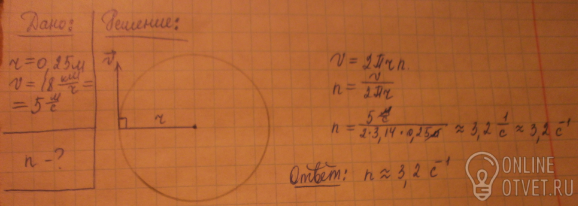 Дано:
r = 0,25 м
v = 18 км/ч =
= 5 м/с
n – ?
Решение:
v
r
v = 2πrn
n = v/2πr
n = 5 м/с / 2·3,14·0,25м ≈ 3,2 1/с ≈ 3,2 с⁻¹
Ответ: n ≈ 3,2 с⁻¹
ONLINE
OTVET.RU